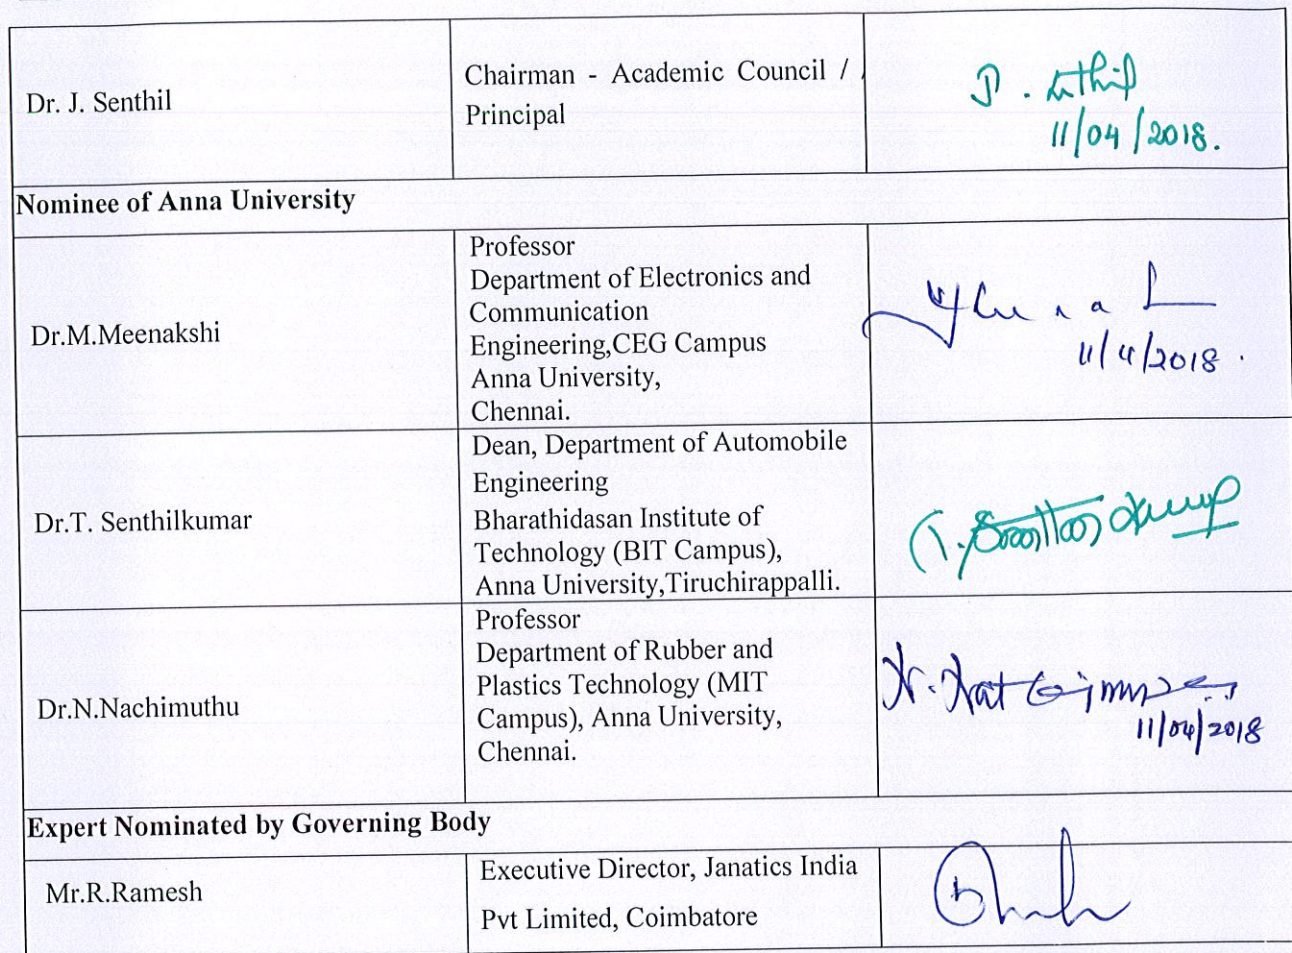 Dr. J. Senthil
Chairman - Academic Council /
Principal
J. Senthil
11/04/2018.
Nominee of Anna University
Dr.M.Meenakshi
Professor
Department of Electronics and
Communication
Engineering,CEG Campus
Anna University,
Chennai.
11/4/2018.
Dr.T. Senthilkumar
Dean, Department of Automobile
Engineering
Bharathidasan Institute of
Technology (BIT Campus),
Anna University,Tiruchirappalli.
Dr.N.Nachimuthu
Professor
Department of Rubber and
Plastics Technology (MIT
Campus), Anna University,
Chennai.
11/04/2018
Expert Nominated by Governing Body
Mr.R.Ramesh
Executive Director, Janatics India
Pvt Limited, Coimbatore